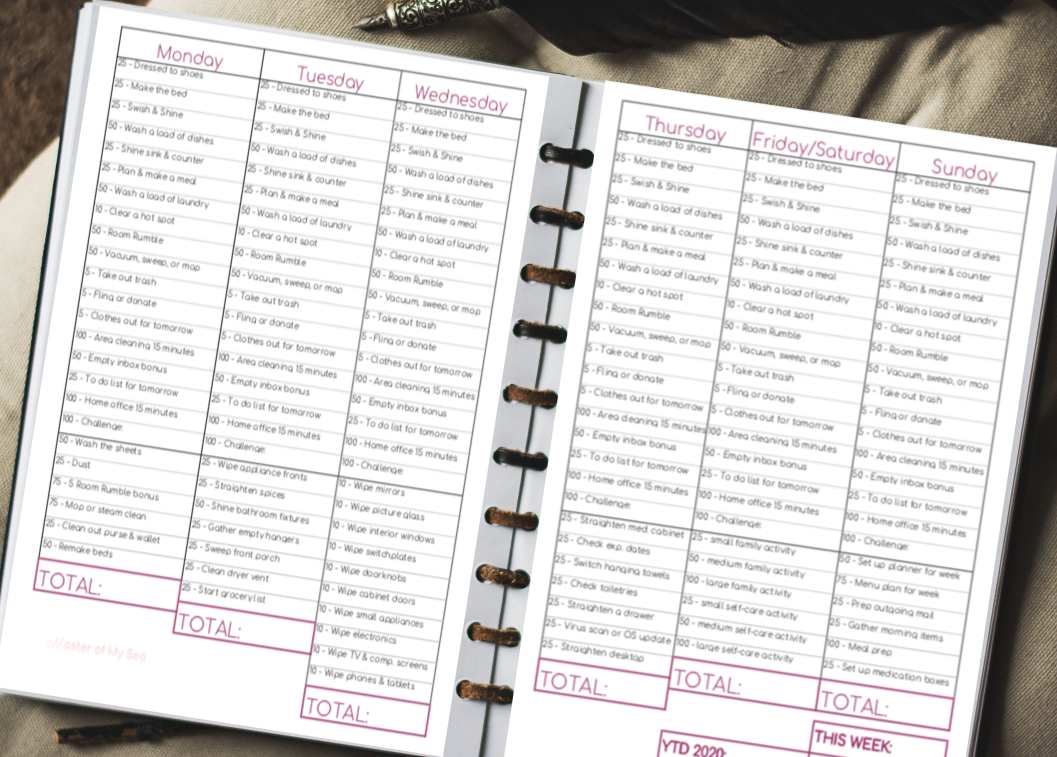 Monday
25 - Dressed to shoes
25 - Make the bed
25 - Swish & Shine
50 - Wash a load of dishes
25 - Shine sink & counter
25 - Plan & make a meal
50 - Wash a load of laundry
10 - Clear a hot spot
50 - Room Rumble
50 - Vacuum, sweep, or mop
5 - Take out trash
5 - Fling or donate
5 - Clothes out for tomorrow
100 - Area cleaning 15 minutes
50 - Empty inbox bonus
25 - To do list for tomorrow
100 - Home office 15 minutes
100 - Challenge:
50 - Wash the sheets
25 - Dust
75 - 5 Room Rumble bonus
75 - Mop or steam clean
25 - Clean out purse & wallet
50 - Remake beds
TOTAL:
Master of My Sea
Tuesday
25 - Dressed to shoes
25 - Make the bed
25 - Swish & Shine
50 - Wash a load of dishes
25 - Shine sink & counter
25 - Plan & make a meal
50 - Wash a load of laundry
10 - Clear a hot spot
50 - Room Rumble
50 - Vacuum, sweep, or mop
5 - Take out trash
5 - Fling or donate
5 - Clothes out for tomorrow
100 - Area cleaning 15 minutes
50 - Empty inbox bonus
25 - To do list for tomorrow
100 - Home office 15 minutes
100 - Challenge:
25 - Wipe appliance fronts
25 - Straighten spices
50 - Shine bathroom fixtures
25 - Gather empty hangers
25 - Sweep front porch
25 - Clean dryer vent
25 - Start grocery list
TOTAL:
Wednesday
25 - Dressed to shoes
25 - Make the bed
25 - Swish & Shine
50 - Wash a load of dishes
25 - Shine sink & counter
25 - Plan & make a meal
50 - Wash a load of laundry
10 - Clear a hot spot
50 - Room Rumble
50 - Vacuum, sweep, or mop
5 - Take out trash
5 - Fling or donate
5 - Clothes out for tomorrow
100 - Area cleaning 15 minutes
50 - Empty inbox bonus
25 - To do list for tomorrow
100 - Home office 15 minutes
100 - Challenge:
10 - Wipe mirrors
10 - Wipe picture glass
10 - Wipe interior windows
10 - Wipe switchplates
10 - Wipe doorknobs
10 - Wipe cabinet doors
10 - Wipe small appliances
10 - Wipe electronics
10 - Wipe TV & comp. screens
10 - Wipe phones & tablets
TOTAL:
Thursday
25 - Dressed to shoes
25 - Make the bed
25 - Swish & Shine
50 - Wash a load of dishes
25 - Shine sink & counter
25 - Plan & make a meal
50 - Wash a load of laundry
10 - Clear a hot spot
50 - Room Rumble
50 - Vacuum, sweep, or mop
5 - Take out trash
5 - Fling or donate
5 - Clothes out for tomorrow
100 - Area cleaning 15 minutes
50 - Empty inbox bonus
25 - To do list for tomorrow
100 - Home office 15 minutes
100 - Challenge:
25 - Straighten med cabinet
25 - Check exp. dates
25 - Switch hanging towels
25 - Check toiletries
25 - Straighten a drawer
25 - Virus scan or OS update
25 - Straighten desktop
TOTAL:
Friday/Saturday
25 - Dressed to shoes
25 - Make the bed
25 - Swish & Shine
50 - Wash a load of dishes
25 - Shine sink & counter
25 - Plan & make a meal
50 - Wash a load of laundry
10 - Clear a hot spot
50 - Room Rumble
50 - Vacuum, sweep, or mop
5 - Take out trash
5 - Fling or donate
5 - Clothes out for tomorrow
100 - Area cleaning 15 minutes
50 - Empty inbox bonus
25 - To do list for tomorrow
100 - Home office 15 minutes
100 - Challenge:
25 - small family activity
50 - medium family activity
100 - large family activity
25 - small self-care activity
50 - medium self-care activity
100 - large self-care activity
TOTAL:
Sunday
25 - Dressed to shoes
25 - Make the bed
25 - Swish & Shine
50 - Wash a load of dishes
25 - Shine sink & counter
25 - Plan & make a meal
50 - Wash a load of laundry
10 - Clear a hot spot
50 - Room Rumble
50 - Vacuum, sweep, or mop
5 - Take out trash
5 - Fling or donate
5 - Clothes out for tomorrow
100 - Area cleaning 15 minutes
50 - Empty inbox bonus
25 - To do list for tomorrow
100 - Home office 15 minutes
100 - Challenge:
50 - Set up planner for week
75 - Menu plan for week
25 - Prep outgoing mail
25 - Gather morning items
100 - Meal prep
25 - Set up medication boxes
TOTAL:
YTD 2020:
THIS WEEK: